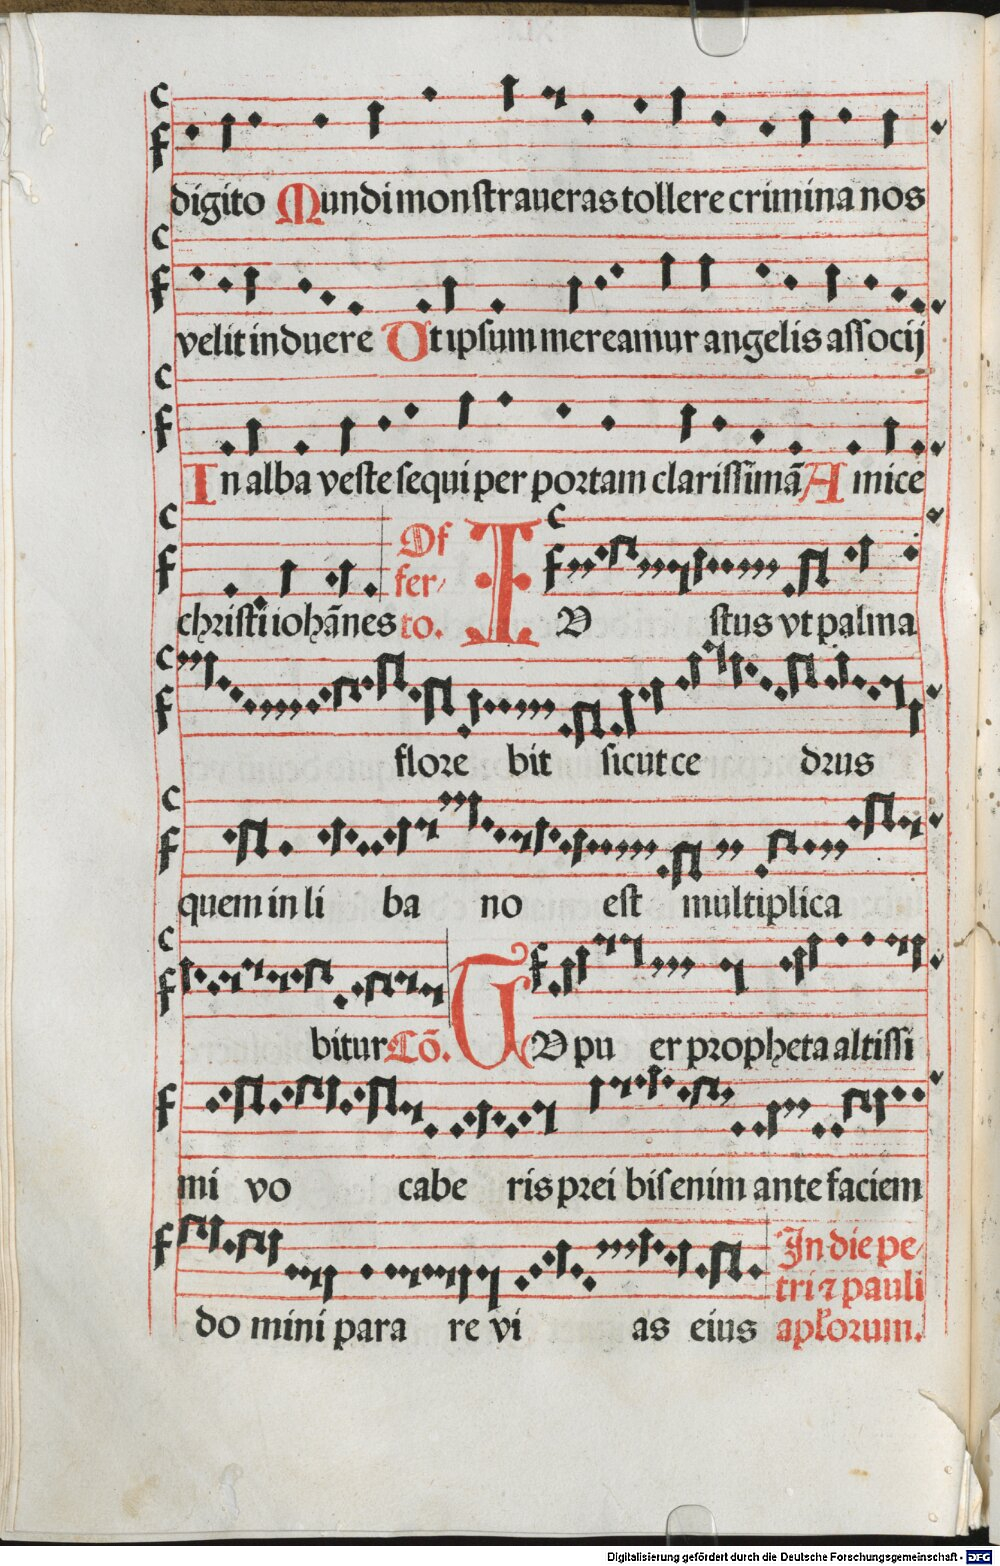 digito Mundi monstraueras tollere crimina nos
velit induere Ut ipsum mereamur angelis associj
In alba veste sequi per portam clarissimā Amice
christi iohānes Offerto. IVstus vt palma
flore bit sicut ce drus
quem in li ba no est multiplica
bitur Cō. TV pu er propheta altissi
mi vo cabe ris prei bis enim ante faciem
do mini para re vi as eius In die petri ⁊ pauli apl̄orum.
Digitalisierung gefördert durch die Deutsche Forschungsgemeinschaft - DFG